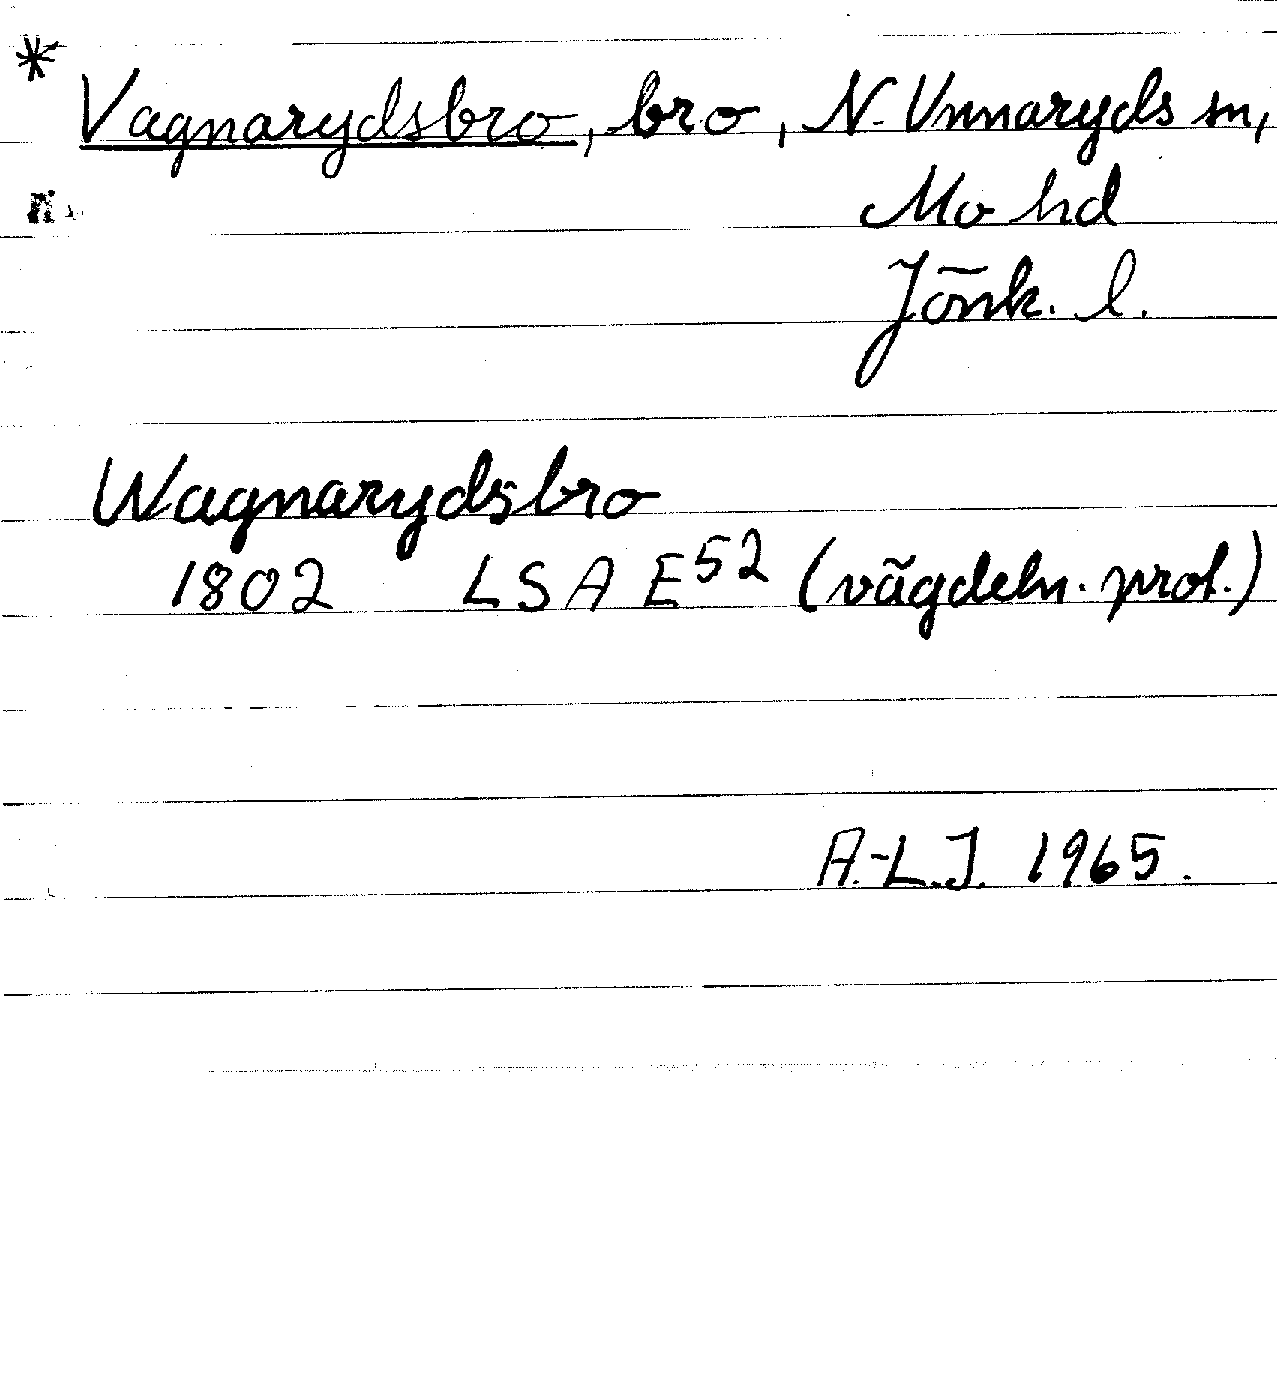 * Vagnarydsbro, bro, N. Unnaryds sn,
Mo hd
Jönk. l.
Wagnarydsbro
1802 LSA E52 (vägdeln. prot.)
A.-L.J. 1965.